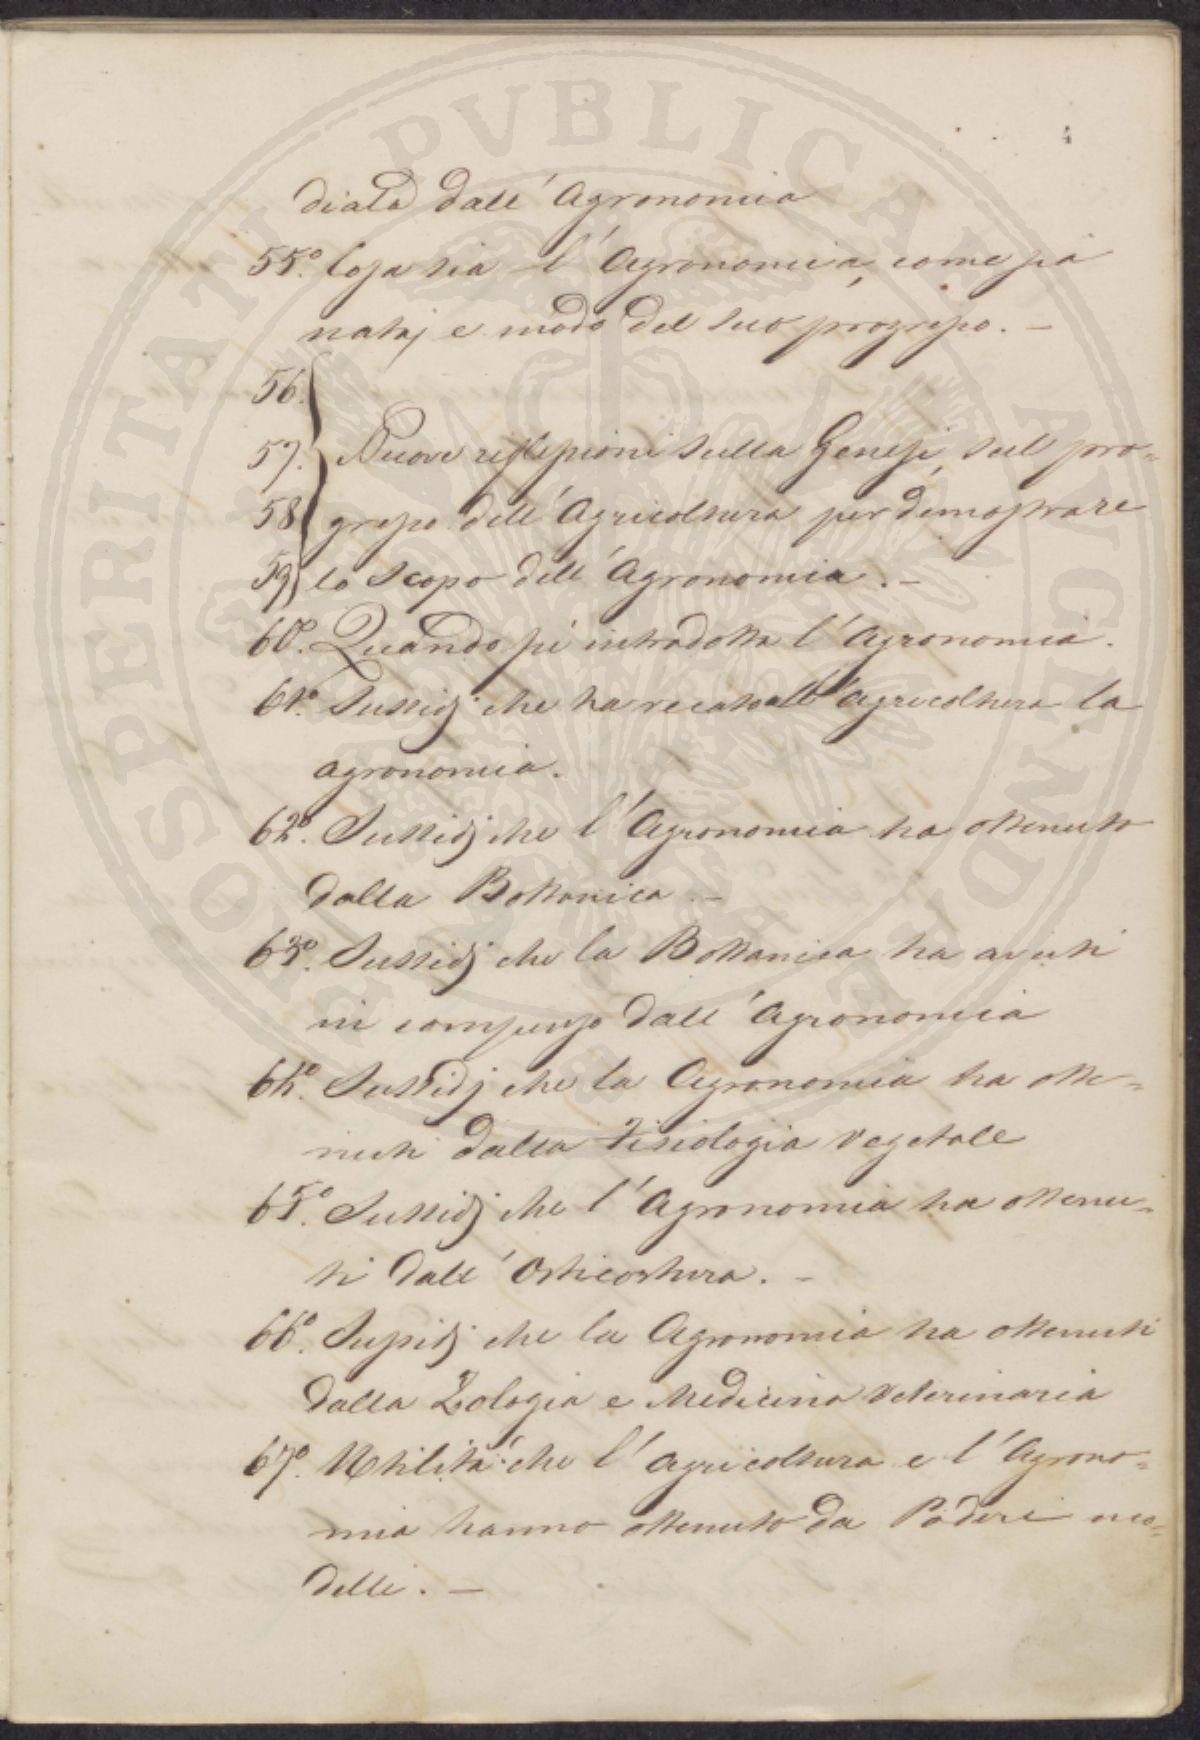 4
diata dall'Agronomia
55.° Cosa sia l'Agronomia, come sia
nata, e modo del suo progresso. –
56.
57. Nuove riflessioni sulla Genesi, sul pro=
58 gresso dell'Agricoltura per dimostrare
59 lo scopo dell'Agronomia. –
60.° Quando si introdotta l'Agronomia.
61.° Sussidj che ha recato all'Agricoltura la
agronomia.
62.° Sussidj che l'Agronomia ha ottenuto
dalla Bottanica –
63.° Sussidj che la Bottanica ha avuti
in compenso dall'Agronomia
64.° Sussidj che la Agronomia ha otte=
nuti dalla Fisiologia vegetale
65.° Sussidj che l'Agronomia ha ottenu=
ti dall'Orticoltura. –
66.° Sussidj che la Agronomia ha ottenuti
dalla Zologia e Medicina Veterinaria
67.° Utilità che l'agricoltura e l'Agrono=
mia hanno ottenuto da Poderi mo=
delli. –
PROSPERITATI PVBLICAE AVGENDAE